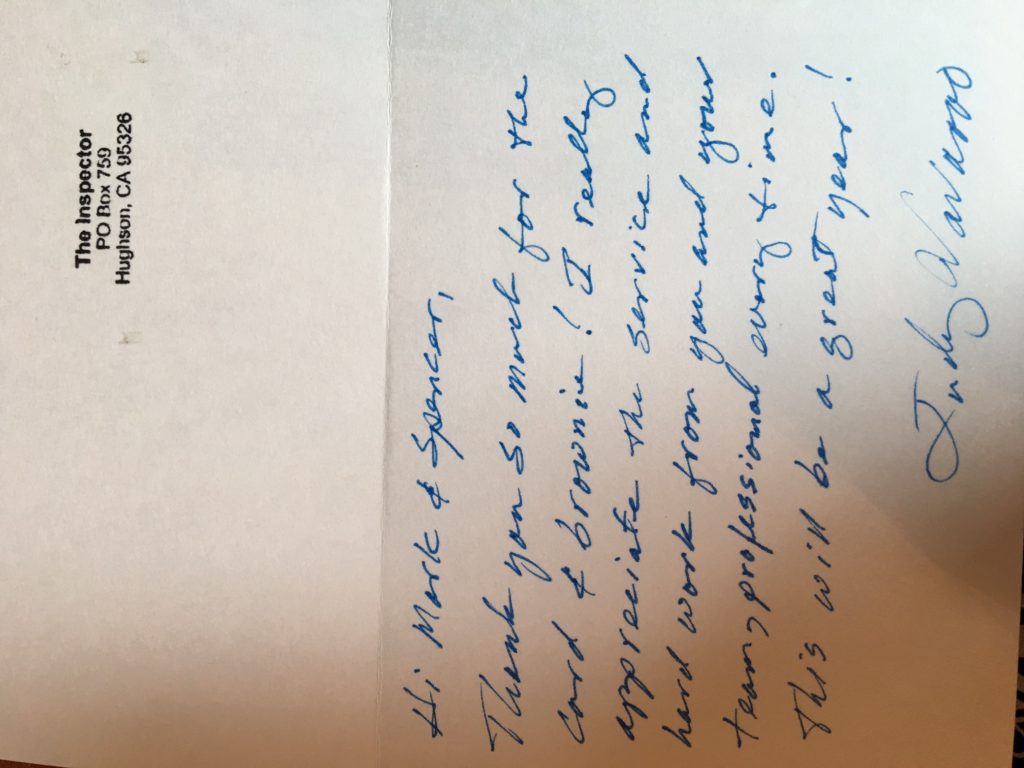 The Inspector
PO Box 759
Hughson, CA 95326
Hi Mark & Spencer,
Thank you so much for the
card & brownie! I really
appreciate the service and
hard work from you and your
team, professional every time.
This will be a great year!
Navarro